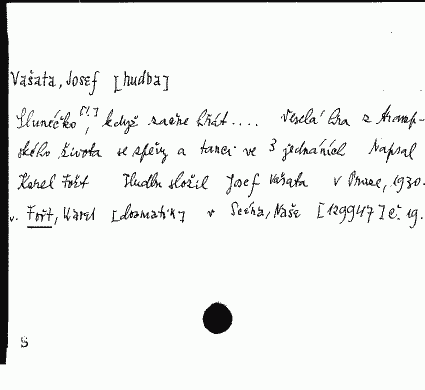 Vašata, Josef [hudba]
Slunéčko [!], když začne hřát.... Veselá hra z tramp-
ského života se zpěvy a tanci ve 3 jednáních Napsal
Karel Fořt Hudbu složil Josef Vašata V Praze, 1930.
v. Fořt, Karel [dramatik] v Scéna, Naše [129947] č. 19.
S